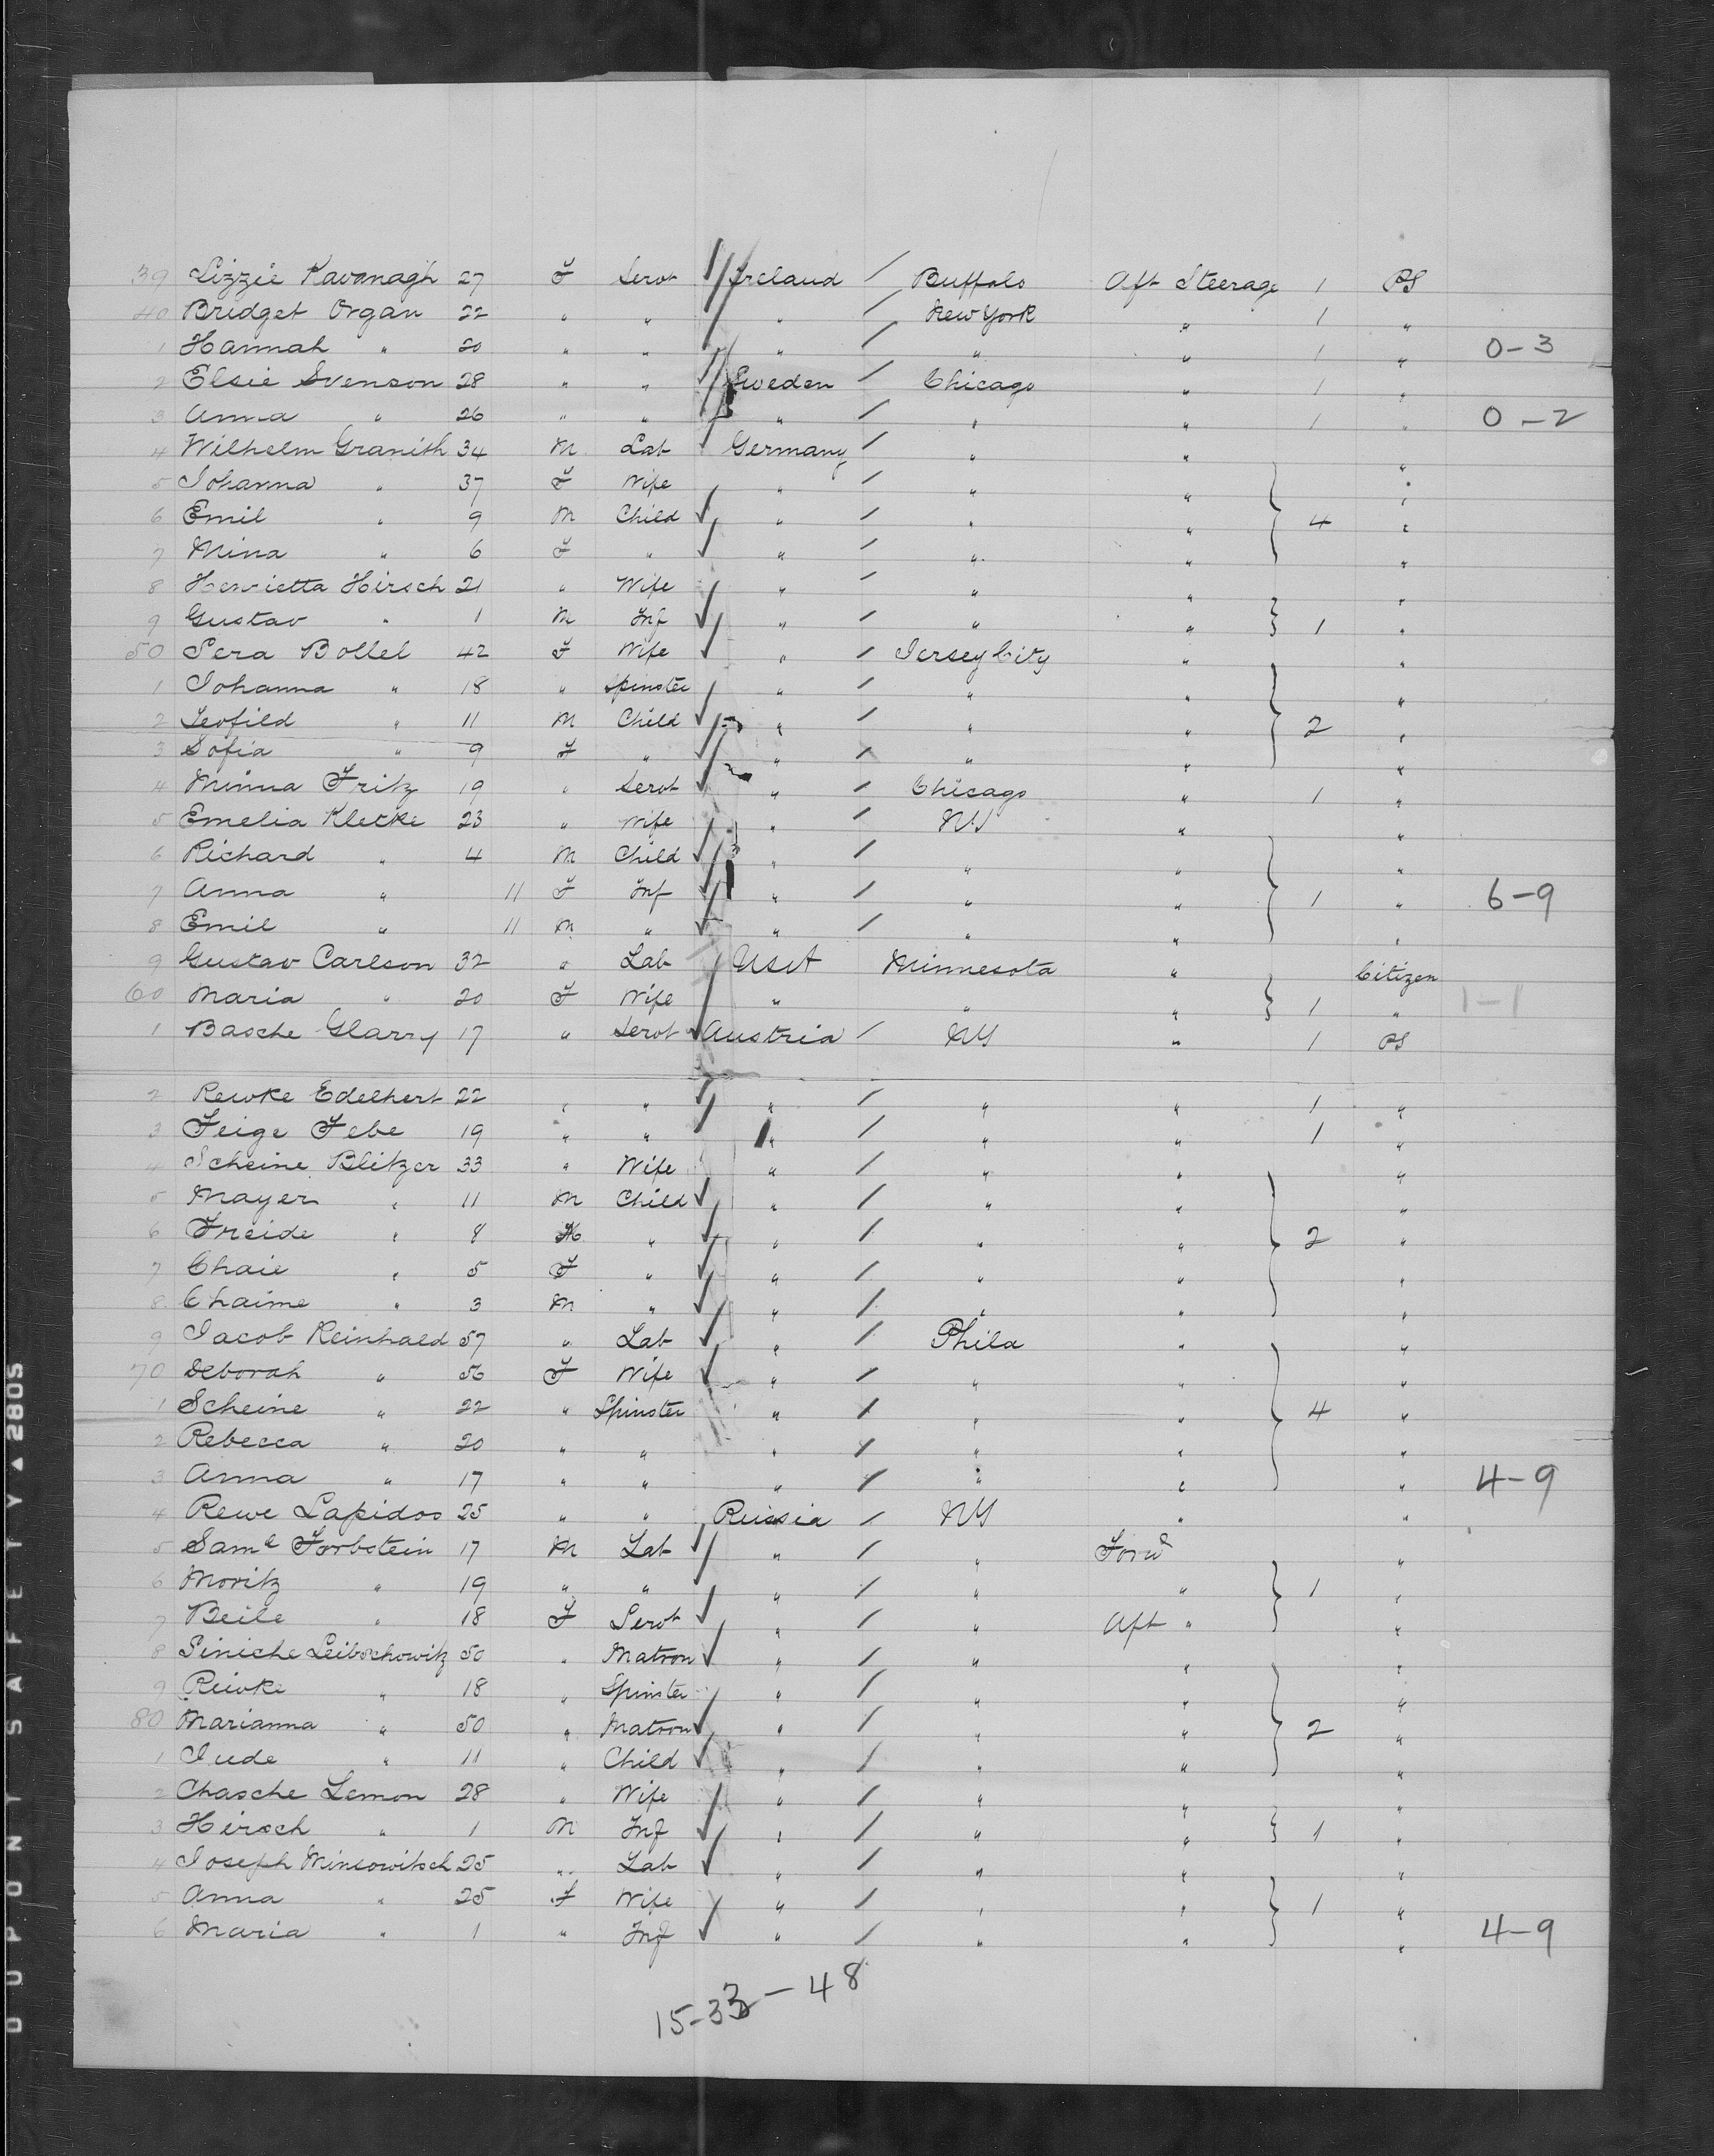 39 Lizzie Kavanagh 27 F Servt Ireland / Buffalo Aft Steerage 1 PS
40 Bridget Organ 22 " " " / New York " 1 "
1 Hannah " 20 " " " / " " 1 " 0-3
2 Elsie Svenson 28 " " Sweden / Chicago " 1 "
3 Anna " 26 " " " / " " 1 " 0-2
4 Wilhelm Granith 34 M Lab Germany / " " "
5 Johanna " 37 F Wife " / " " "
6 Emil " 9 M Child " / " " 4 "
7 Mina " 6 F " " / " " "
8 Henrietta Hirsch 21 " Wife " / " " "
9 Gustav " 1 M Inf " / " " 1 "
50 Sera Bollel 42 F Wife " / Jersey City " "
1 Johanna " 18 " Spinster " / " " "
2 Teofild " 11 M Child " / " " 2 "
3 Sofia " 9 F " " / " " "
4 Minna Fritz 19 " Servt " / Chicago " 1 "
5 Emelia Kletke 23 " Wife " / NY " "
6 Richard " 4 M Child " / " " "
7 Anna " 11 F Inf " / " " 1 " 6-9
8 Emil " 11 M " " / " " "
9 Gustav Carlson 32 " Lab USA Minnesota " Citizen
60 Maria " 20 F Wife " " " 1 " 1-1
1 Basche Glarry 17 " Servt Austria / NY " 1 PS
2 Rewke Edelhert 22 " " " / " " 1 "
3 Feige Febe 19 " " " / " " 1 "
4 Scheine Blitzer 33 " Wife " / " " "
5 Mayer " 11 M Child " / " " "
6 Freide " 8 " " / " " 2 "
7 Chaie " 5 F " " / " " "
8 Chaime " 3 M " " / " " "
9 Jacob Reinhald 57 " Lab " / Phila " "
70 Deborah " 56 F Wife " / " " "
1 Scheine " 22 " Spinster " / " " 4 "
2 Rebecca " 20 " " " / " " "
3 Anna " 17 " " " / " " " 4-9
4 Rewe Lapidos 25 " " Russia / NY " "
5 Saml Forbstein 17 M Lab " / " Forwd "
6 Moritz " 19 " " " / " " 1 "
7 Beile " 18 F Servt " / " Aft " "
8 Siniche Leibschowitz 50 " Matron " / " " "
9 Reivke " 18 " Spinster " / " " "
80 Marianna " 50 " Matron " / " " 2 "
1 Jude " 11 " Child " / " " "
2 Chasche Lemon 28 " Wife " / " " "
3 Hirsch " 1 M Inf " / " " 1 "
4 Joseph Winsowitsch 25 " Lab " / " " "
5 Anna " 25 F Wife " / " " 1 "
6 Maria " 1 " Inf " / " " " 4-9
15-33-48
DUPONT SAFETY ▲ 2805